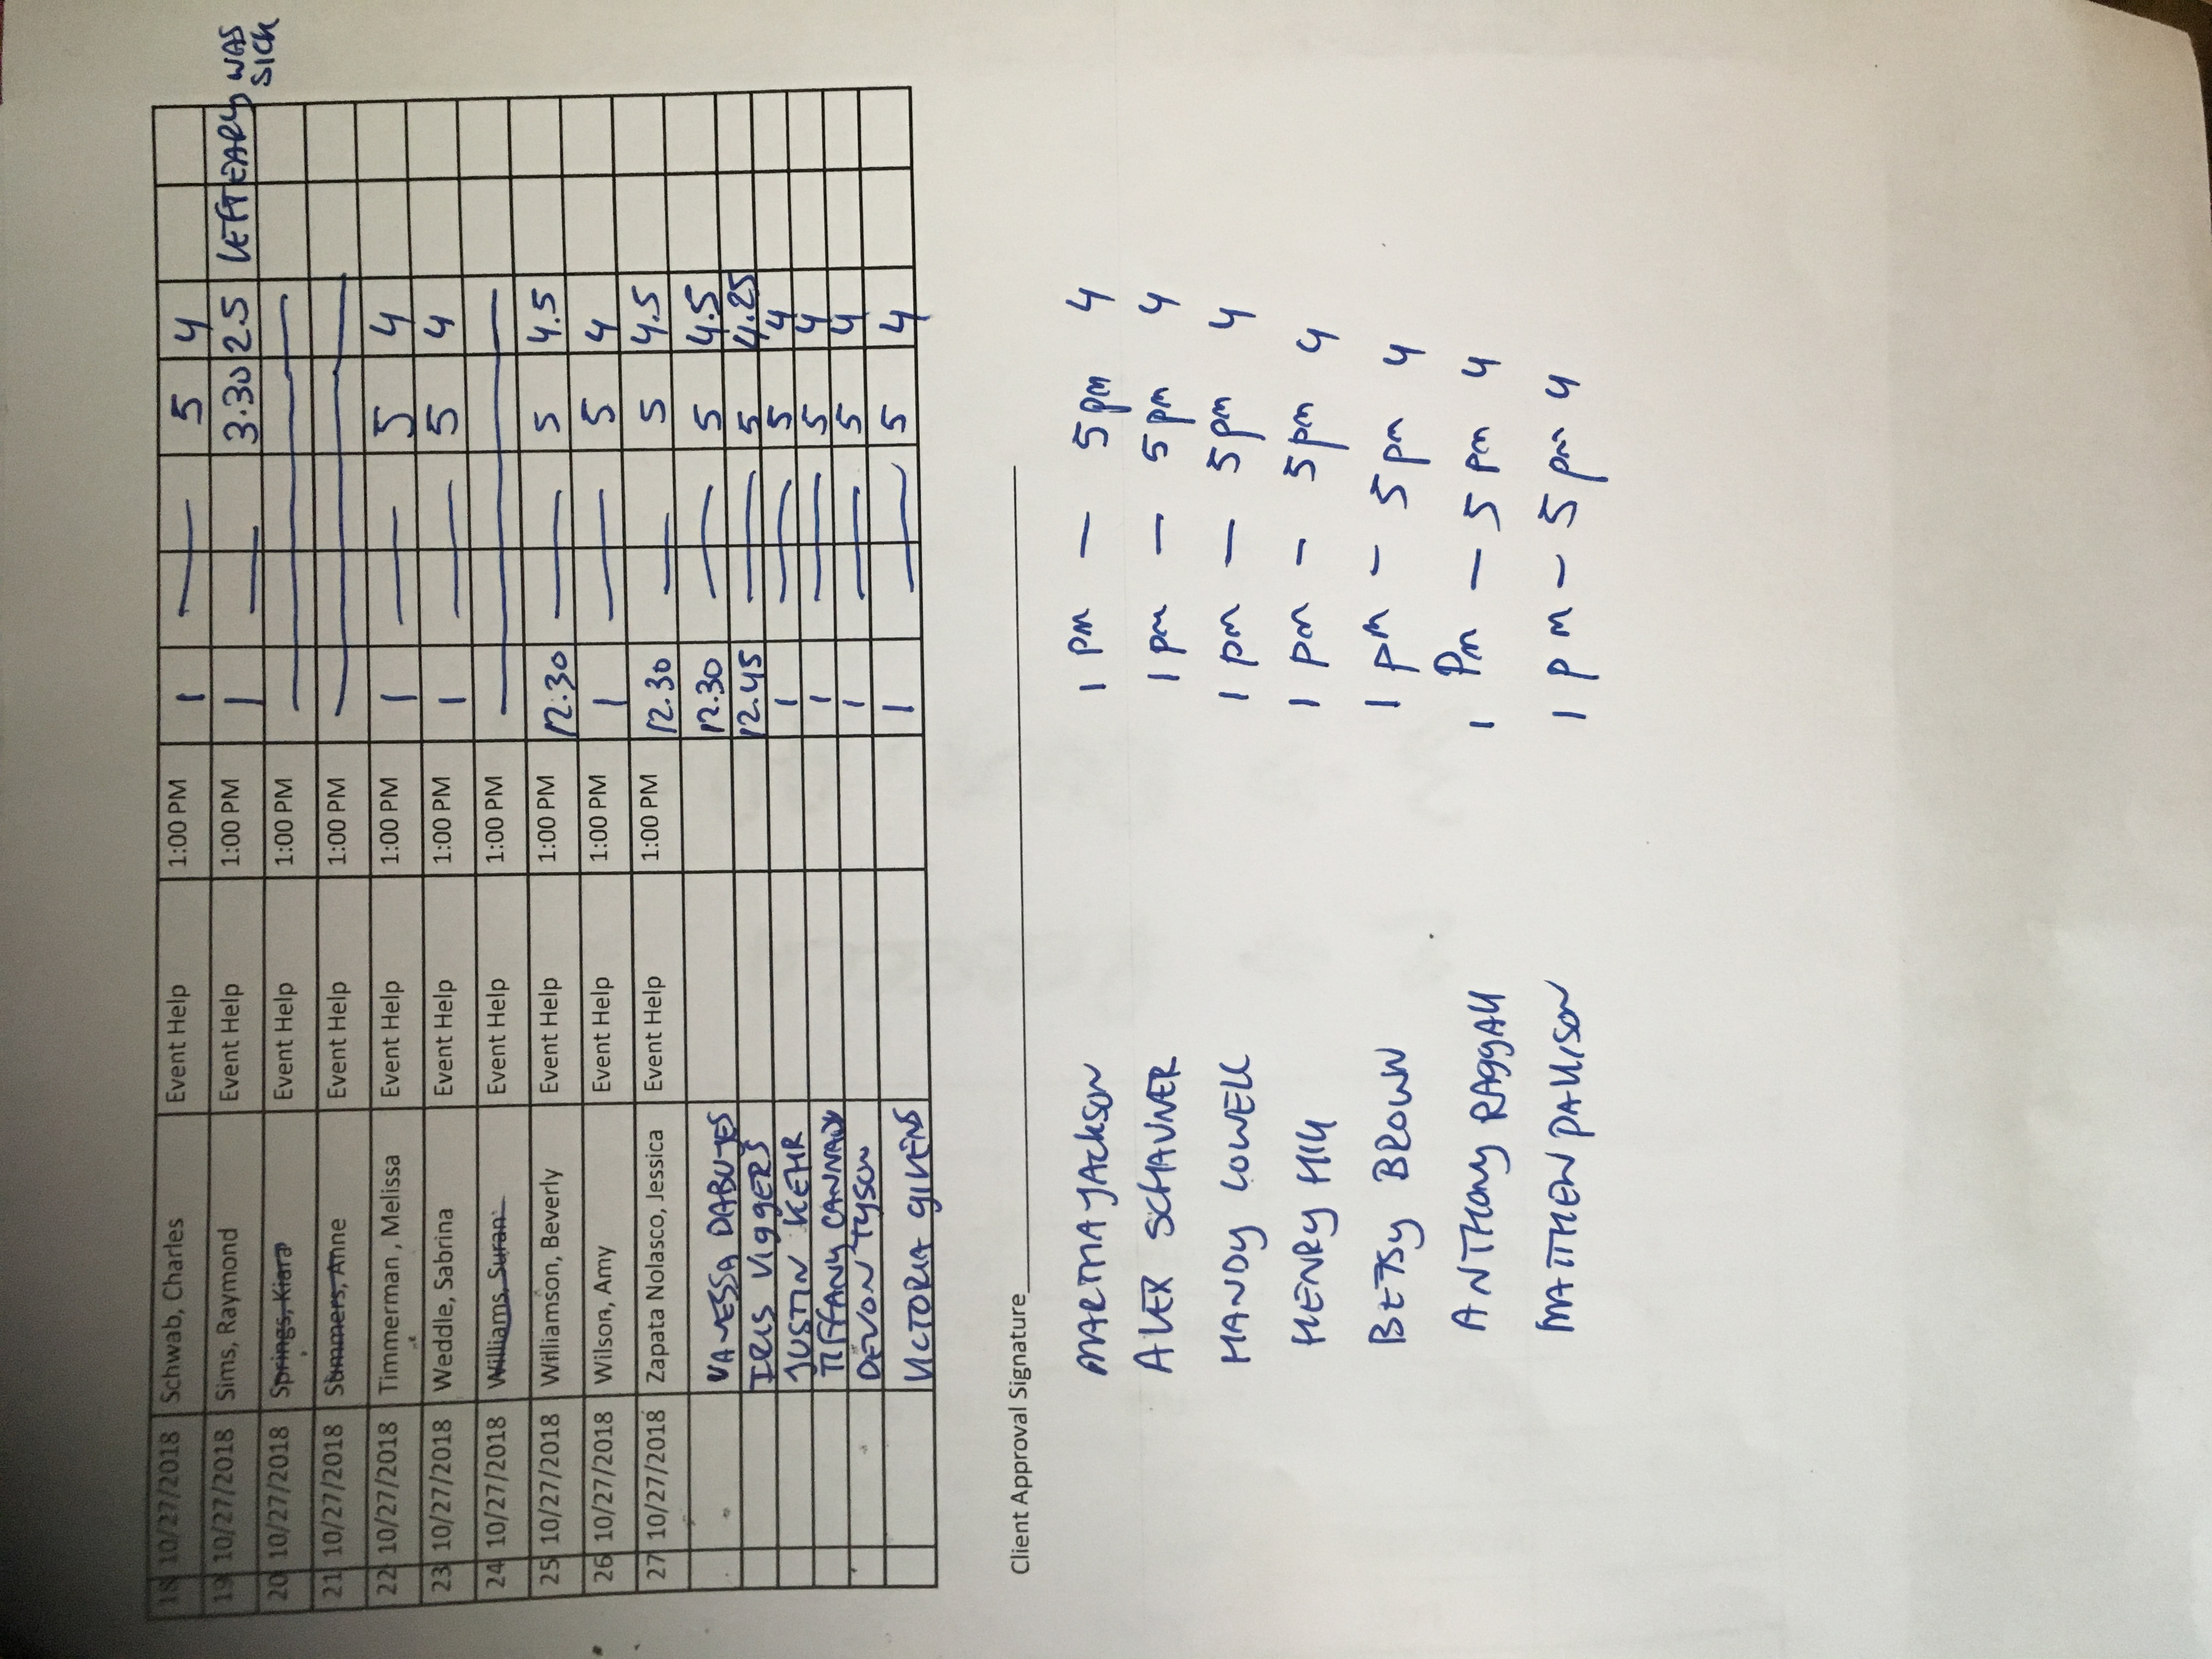 18 10/27/2018 Schwab, Charles Event Help 1:00 PM 1 — 5 4
19 10/27/2018 Sims, Raymond Event Help 1:00 PM 1 — 3.30 2.5 LEFT EARLY WAS SICK
20 10/27/2018 Springs, Kiara Event Help 1:00 PM —
21 10/27/2018 Summers, Anne Event Help 1:00 PM —
22 10/27/2018 Timmerman , Melissa Event Help 1:00 PM 1 — 5 4
23 10/27/2018 Weddle, Sabrina Event Help 1:00 PM 1 — 5 4
24 10/27/2018 Williams, Suran Event Help 1:00 PM —
25 10/27/2018 Williamson, Beverly Event Help 1:00 PM 12.30 — 5 4.5
26 10/27/2018 Wilson, Amy Event Help 1:00 PM 1 — 5 4
27 10/27/2018 Zapata Nolasco, Jessica Event Help 1:00 PM 12.30 — 5 4.5
VANESSA 12.30 — 5 4.5
IRIS VIGGERS 12.45 — 5 4.25
JUSTIN KEHR 1 — 5 4
TIFFANY CANNADY 1 — 5 4
DEVON TYSON 1 — 5 4
VICTORIA GIVENS 1 — 5 4
Client Approval Signature
MARTHA JACKSON 1 pm — 5 pm 4
ALEX SCHAUNER 1 pm — 5 pm 4
HANDY LOWELL 1 pm — 5 pm 4
HENRY HILL 1 pm — 5 pm 4
BETSY BROWN 1 pm — 5 pm 4
ANTHONY 1 Pm — 5 pm 4
MATTHEW PALLISON 1 pm — 5 pm 4